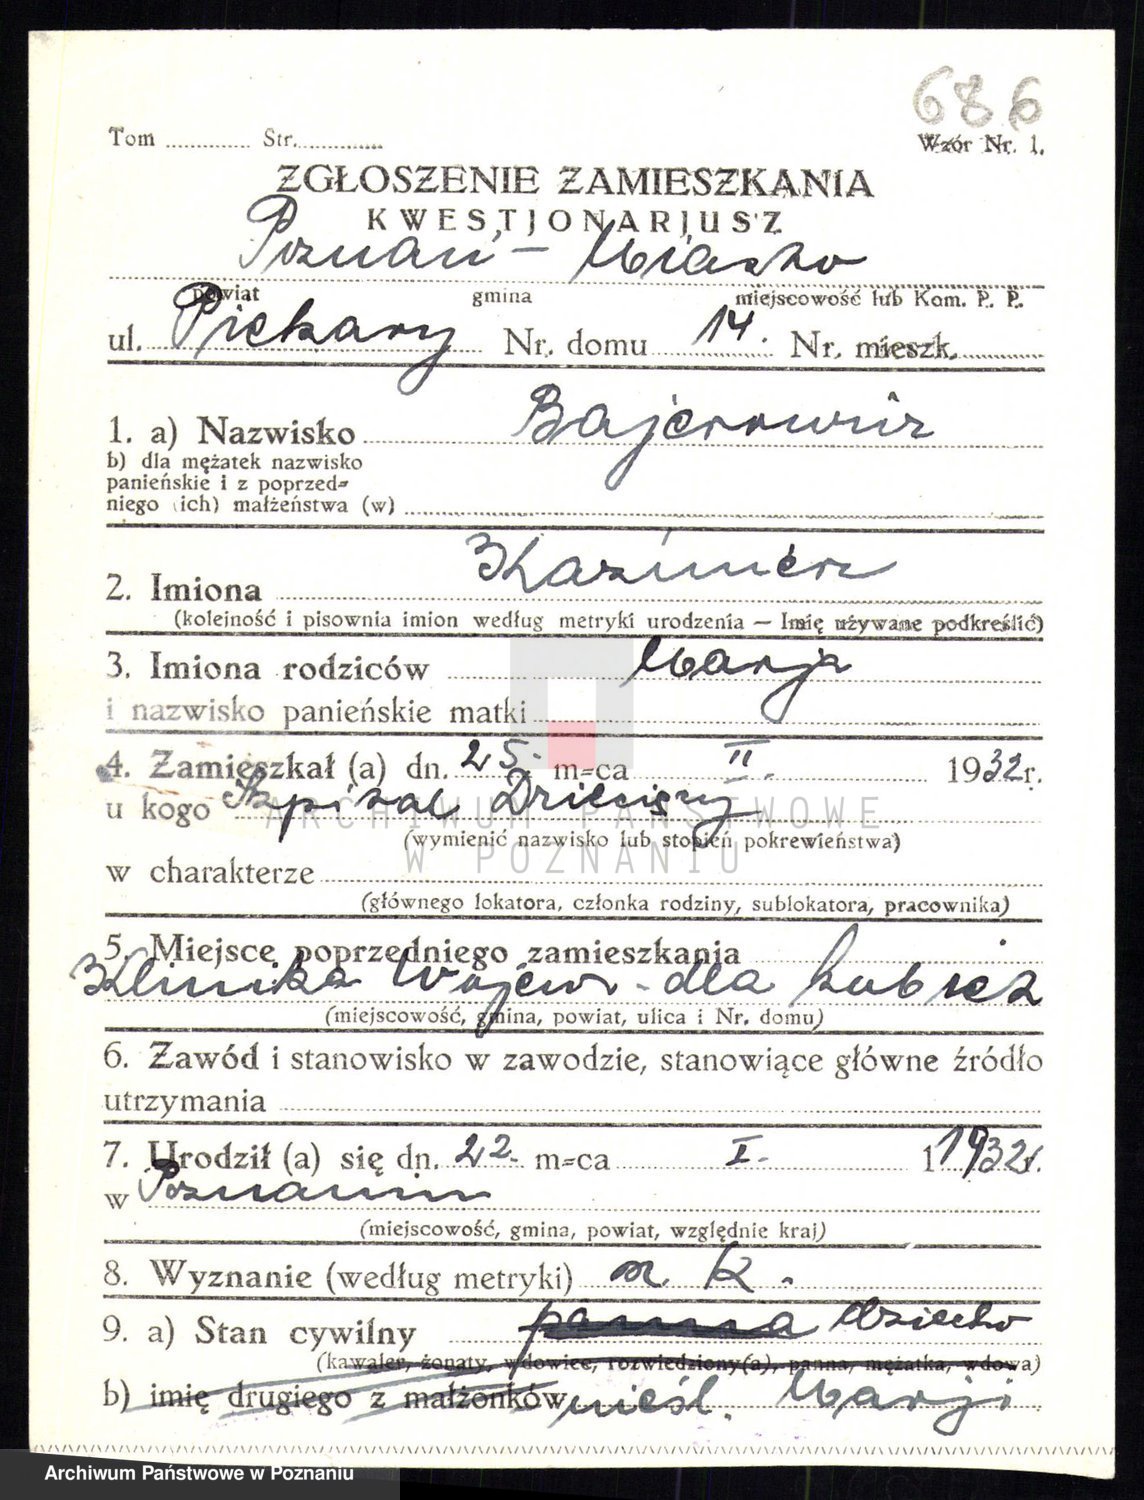 686
Tom ............ Str. ............
Wzór Nr. 1.
ZGŁOSZENIE ZAMIESZKANIA
KWESTJONARJUSZ
Poznań – Miasto
powiat gmina miejscowość lub Kom. P. P.
ul. Piekary Nr. domu 14. Nr. mieszk.
1. a) Nazwisko Bajerowicz
b) dla mężatek nazwisko
panieńskie i z poprzed=
niego (ich) małżeństwa (w)
2. Imiona Kazimierz
(kolejność i pisownia imion według metryki urodzenia — Imię używane podkreślić)
3. Imiona rodziców Marja
i nazwisko panieńskie matki
4. Zamieszkał (a) dn. 25. m=ca II. 1932 r.
u kogo Szpital Dziecięcy
ARCHIWUM PAŃSTWOWE
(wymienić nazwisko lub stopień pokrewieństwa)
W POZNANIU
w charakterze
(głównego lokatora, członka rodziny, sublokatora, pracownika)
5. Miejsce poprzedniego zamieszkania
Klinika Wojew. dla kobiet
(miejscowość, gmina, powiat, ulica i Nr. domu)
6. Zawód i stanowisko w zawodzie, stanowiące główne źródło
utrzymania
7. Urodził (a) się dn. 22. m=ca I. 1 1932 r.
w Poznaniu
(miejscowość, gmina, powiat, względnie kraj)
8. Wyznanie (według metryki) rz. k.
9. a) Stan cywilny panna dziecko
(kawaler, żonaty, wdowiec, rozwiedziony(a), panna, mężatka, wdowa)
b) imię drugiego z małżonków nieśl. Marji
Archiwum Państwowe w Poznaniu